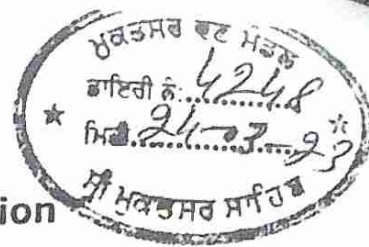 ਮੁਕਤਸਰ ਵਣ ਮੰਡਲ
ਡਾਇਰੀ ਨੰ: 4248
ਮਿਤੀ 24-03-23
ਸ੍ਰੀ ਮੁਕਤਸਰ ਸਾਹਿਬ
ion